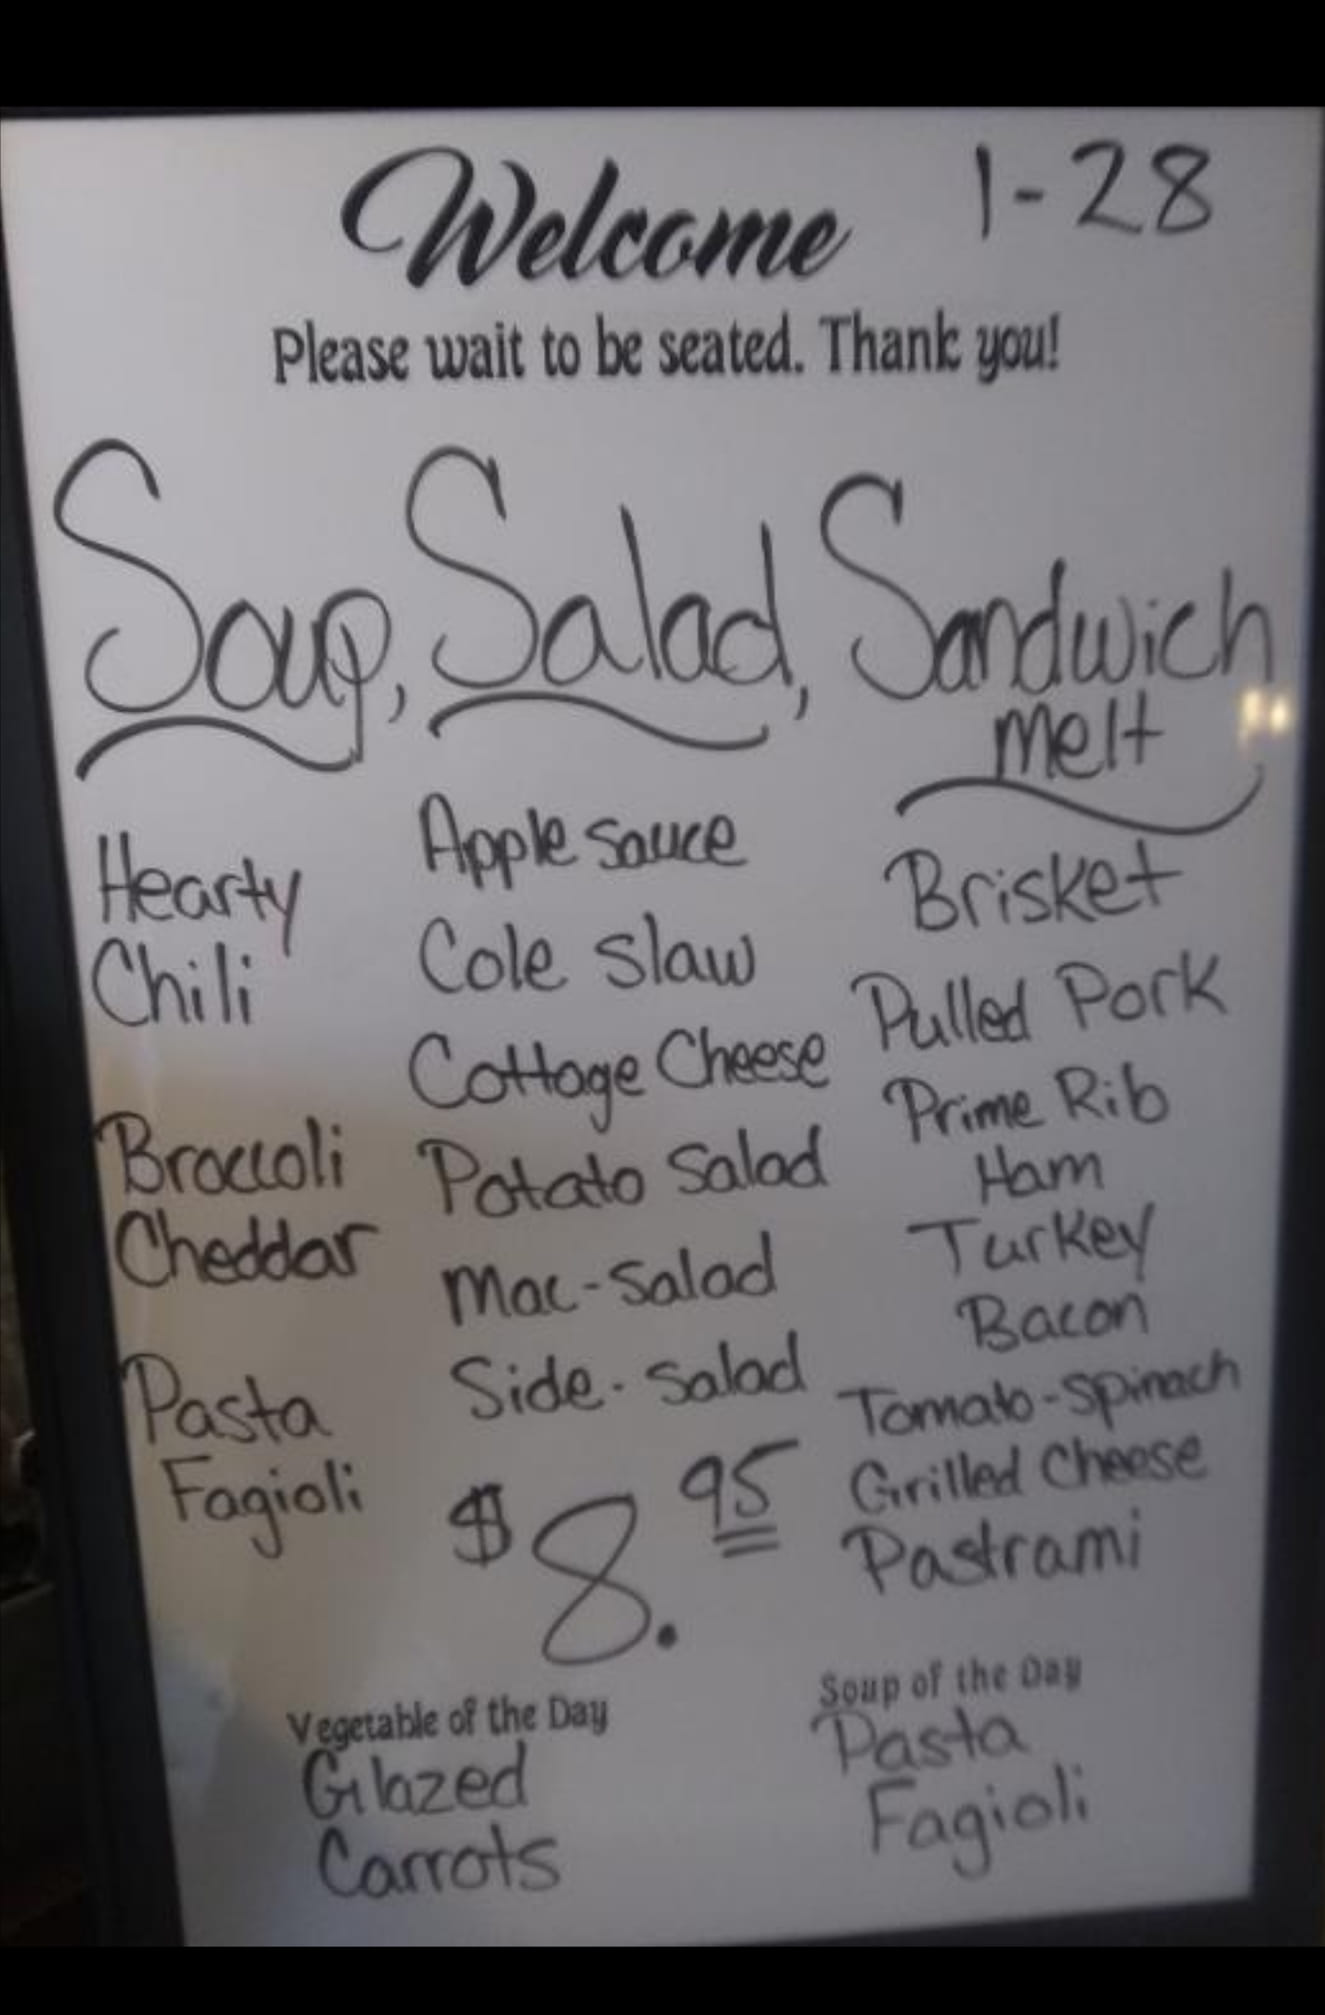 Welcome 1-28
Please wait to be seated. Thank you!
Soup, Salad, Sandwich
melt
Hearty
Chili
Broccoli
Cheddar
Pasta
Fagioli
Apple sauce
Cole slaw
Cottage Cheese
Potato salad
Mac-salad
Side-salad
$8.95
Brisket
Pulled Pork
Prime Rib
Ham
Turkey
Bacon
Tomato-spinach
Grilled Cheese
Pastrami
Vegetable of the Day
Glazed
Carrots
Soup of the Day
Pasta
Fagioli